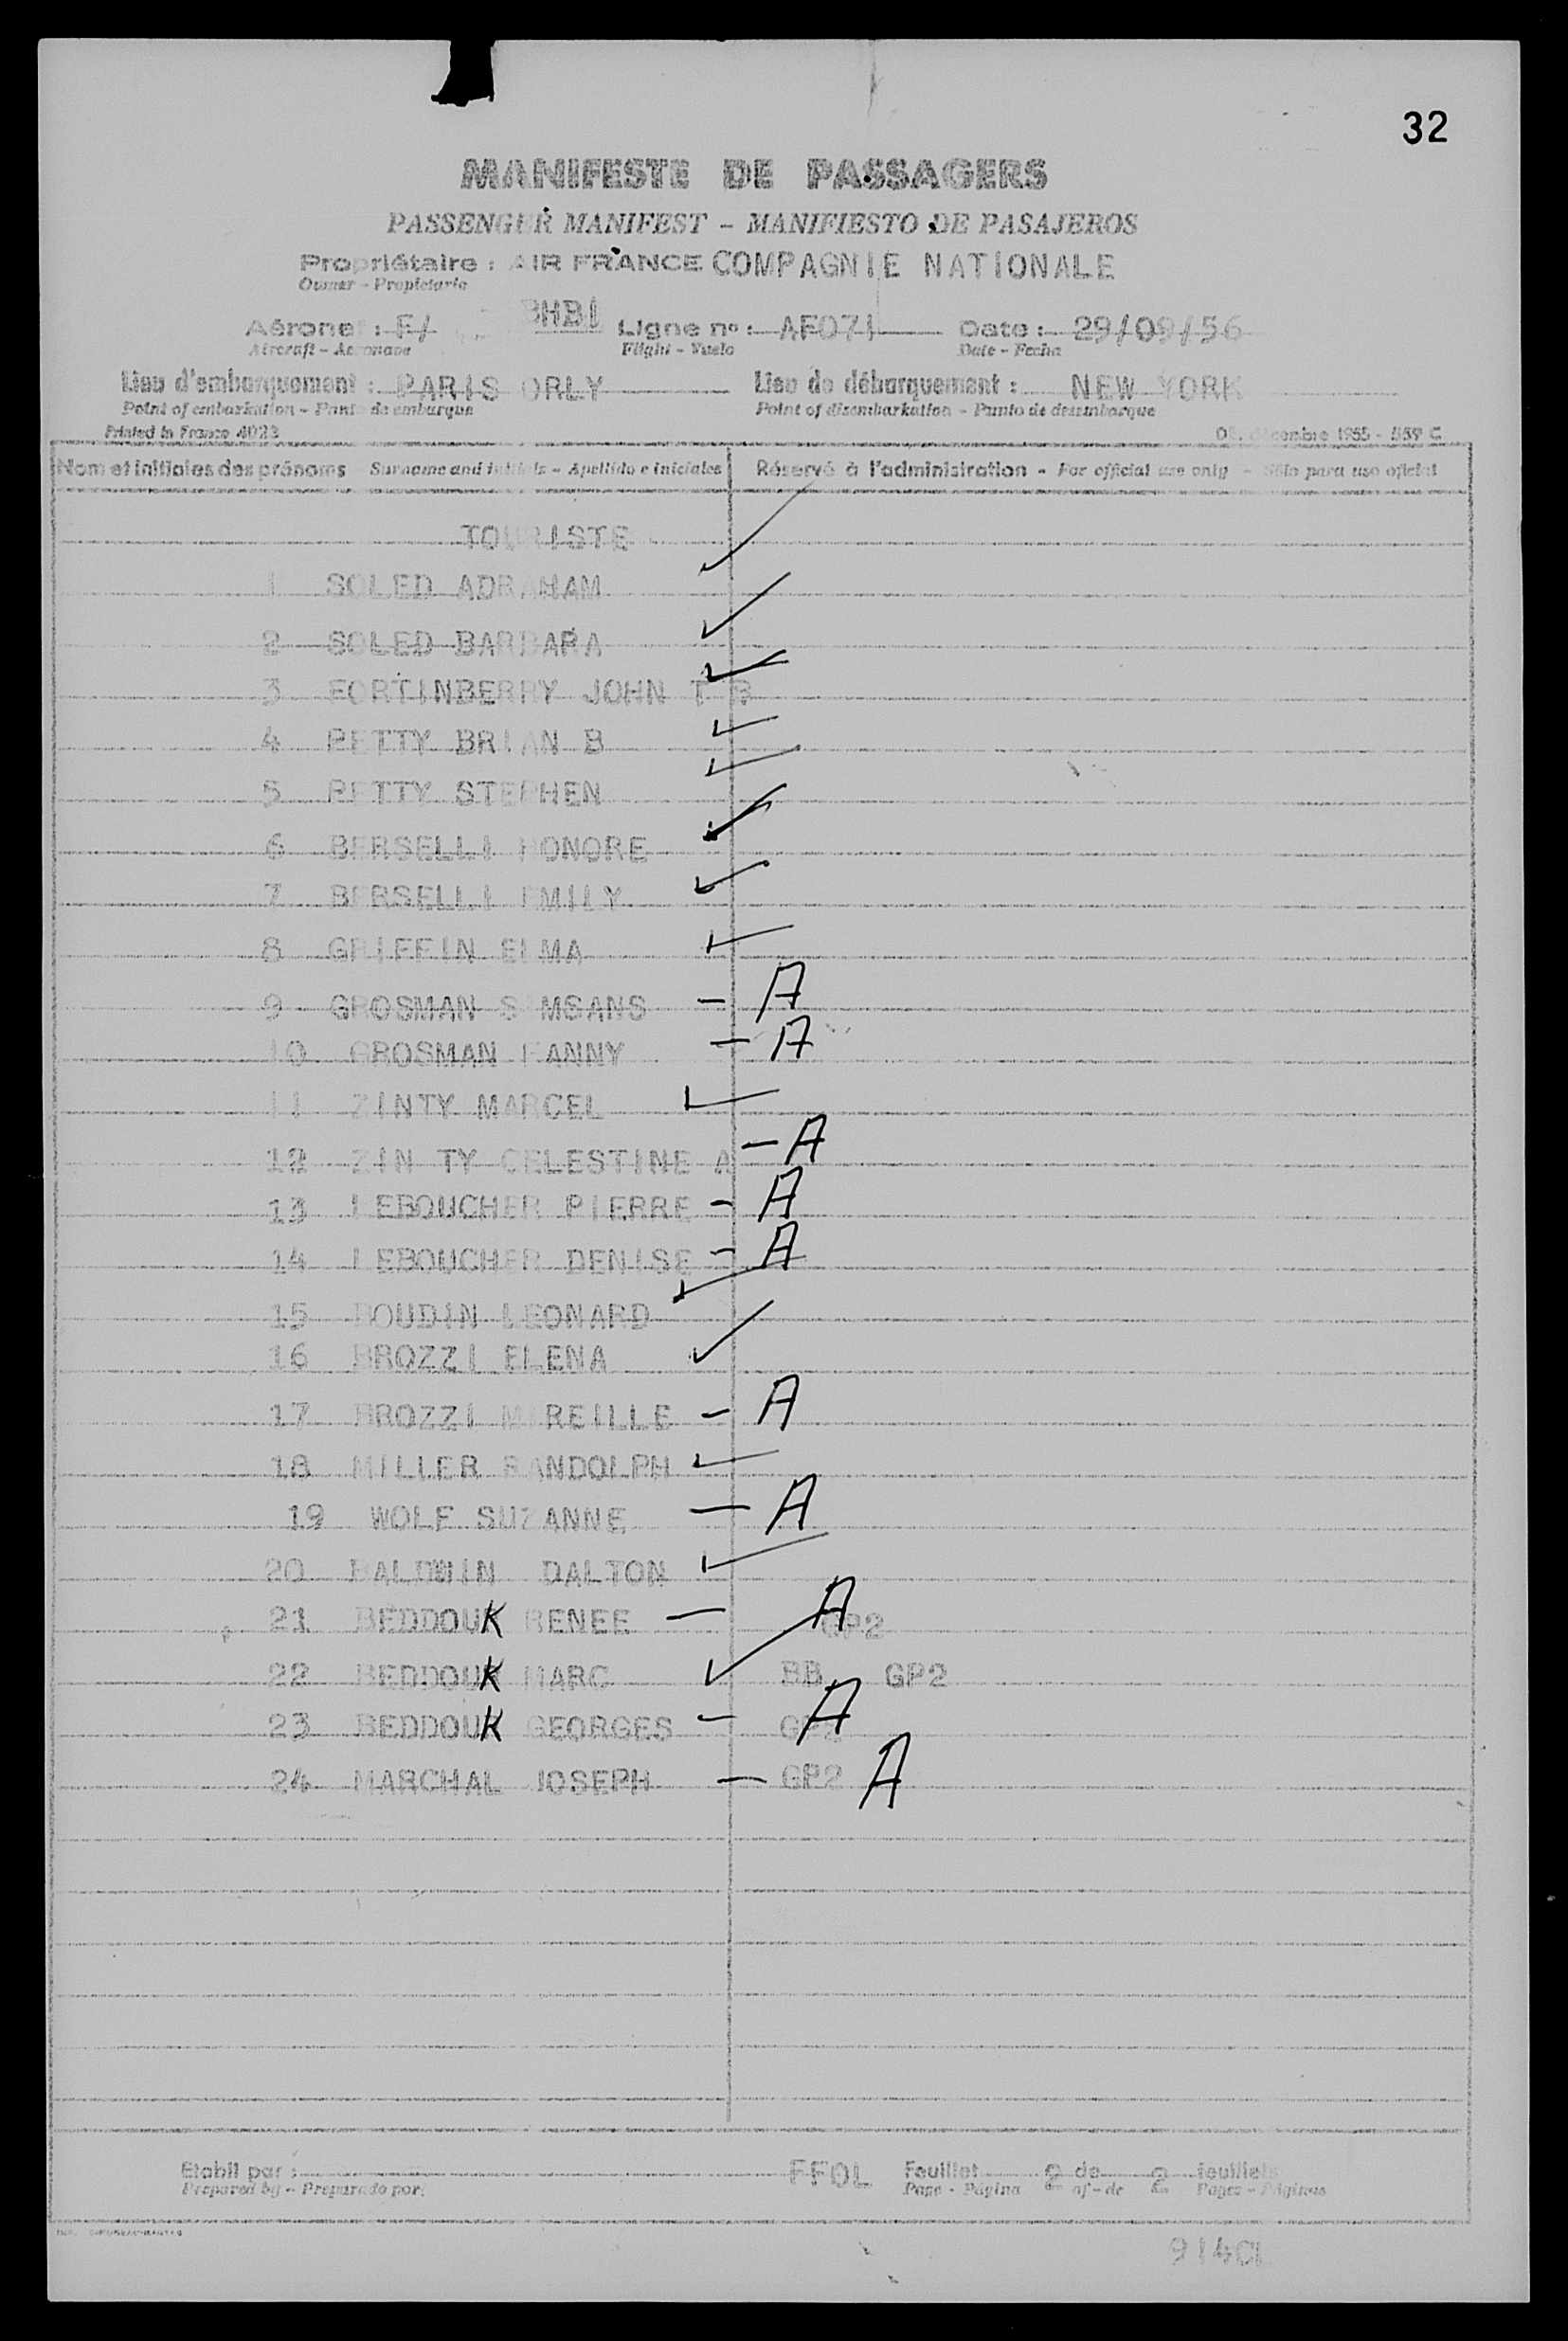 32
MANIFESTE DE PASSAGERS
PASSENGER MANIFEST – MANIFIESTO DE PASAJEROS
Propriétaire : AIR FRANCE COMPAGNIE NATIONALE
Owner – Propietario
Aéronef : F/ BHBI Ligne nº : AF071 Date : 29/09/56
Aircraft – Aeronave Flight – Vuelo Date – Fecha
Lieu d'embarquement : PARIS ORLY Lieu de débarquement : NEW YORK
Point of embarkation – Punto de embarque Point of disembarkation – Punto de desembarque
Printed in France 4023 décembre 1955 - 559 C
Nom et initiales des prénoms Surname and initials – Apellido e iniciales Réservé à l'administration - For official use only - Sólo para uso oficial
TOURISTE
1 SOLED ADRAHAM
2 SOLED BARBARA
3 FORTINBERRY JOHN T B
4 PETTY BRIAN B
5 PETTY STEPHEN
6 BERSELLI HONORE
7 BERSELLI EMILY
8 GRIFFIN ELMA
9 GROSMAN SIMSANS – A
10 GROSMAN FANNY – A
11 ZINTY MARCEL
12 ZIN TY CELESTINE A – A
13 LEBOUCHER PIERRE – A
14 LEBOUCHER DENISE – A
15 BOUDIN LEONARD
16 BROZZI ELENA
17 BROZZI MIREILLE – A
18 MILLER RANDOLPH
19 WOLF SUZANNE – A
20 BALDWIN DALTON
21 BEDDOUK RENEE – A GP2
22 BEDDOUK MARC BB GP2
23 BEDDOUK GEORGES – GP2 A
24 MARCHAL JOSEPH – GP2 A
Etabli par : FFOL Feuillet 2 de 2 feuillets
Prepared by – Preparado por: Page - Página of - de Pages - Páginas
914CL